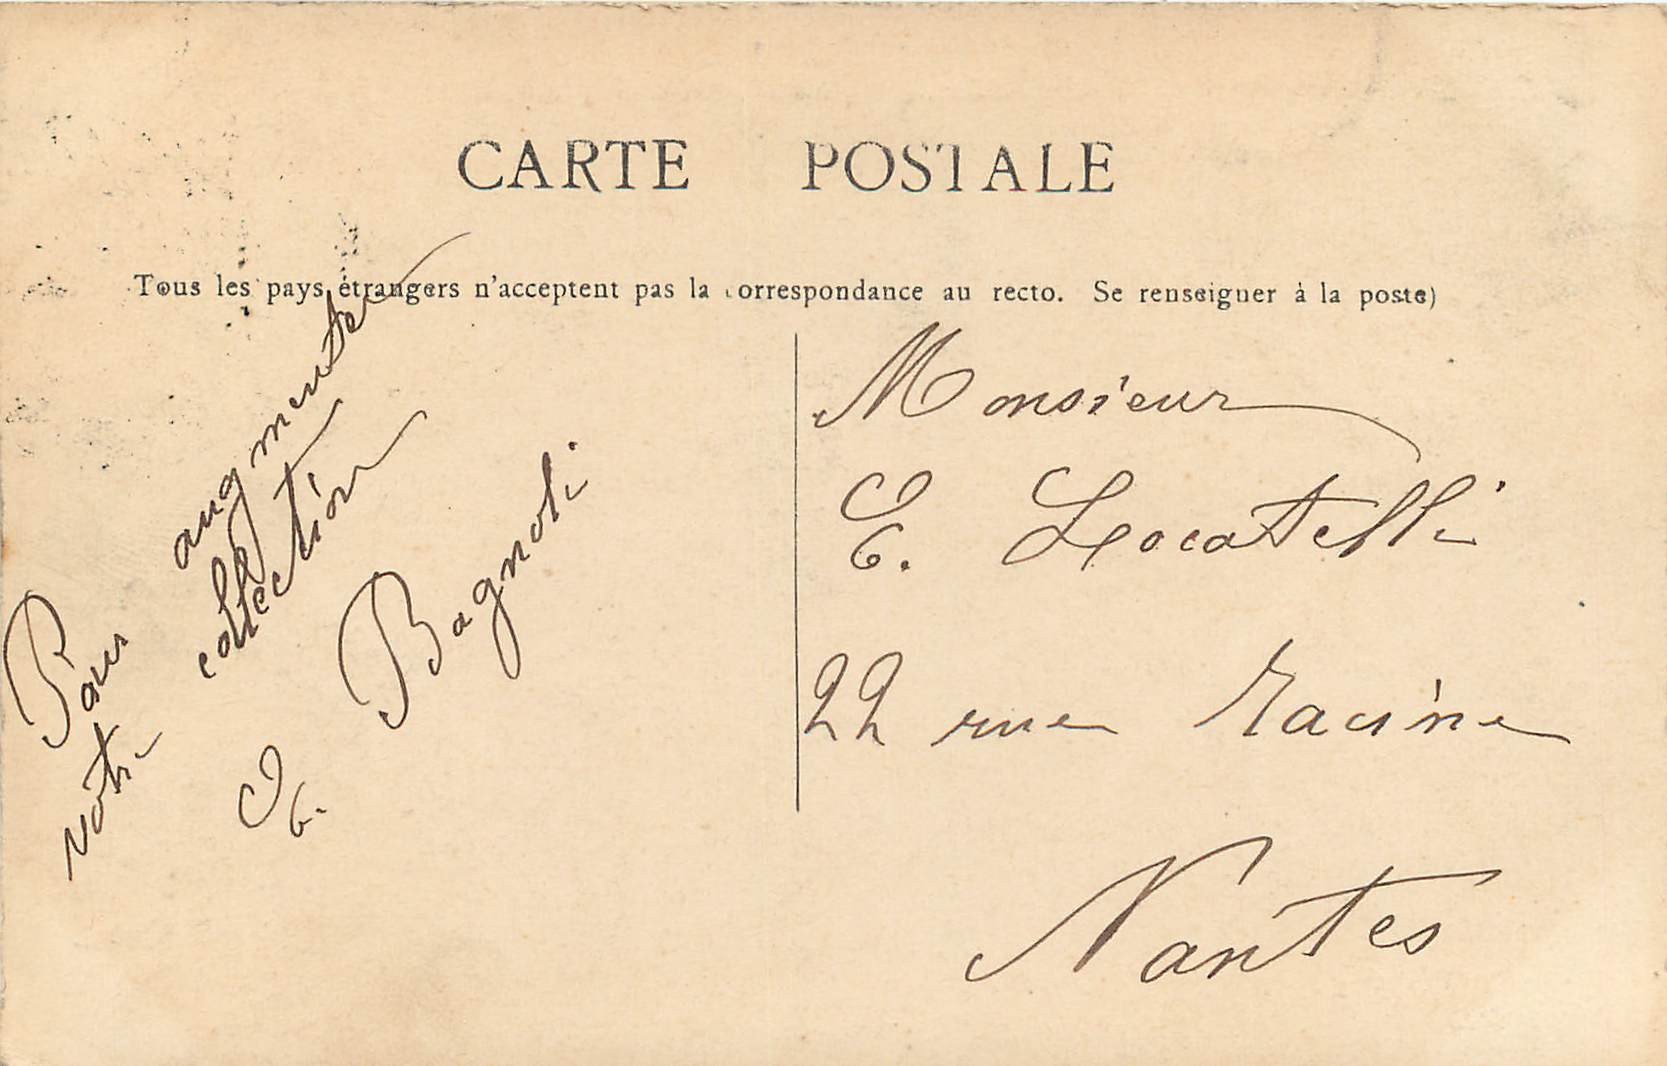 CARTE POSTALE
Tous les pays étrangers n'acceptent pas la correspondance au recto. Se renseigner à la poste)
Pour augmenter
votre collection
E. Bagnoli
Monsieur
E. Locatelli
22 rue Racine
Nantes